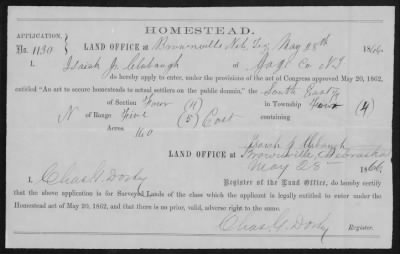 HOMESTEAD.
APPLICATION.
No. 1130
LAND OFFICE at Brownville Neb. Ter May 28th 1866.
I, Isaiah J. Clabaugh of Gage Co N.T.
do hereby apply to enter, under the provisions of the act of Congress approved May 20, 1862,
entitled "An act to secure homesteads to actual settlers on the public domain," the South East 1/4
of Section Four (4) in Township Four (4)
N of Range Five (5) East
Acres. 160
Isaiah J. Clabaugh
LAND OFFICE at Brownville Nebraska
May 28 1866.
I, Chas. G. Dorsey Register of the Land Office, do hereby certify
that the above application is for Surveyed Lands of the class which the applicant is legally entitled to enter under the
Homestead act of May 20, 1862, and that there is no prior, valid, adverse right to the same.
Chas. G. Dorsey
Register.